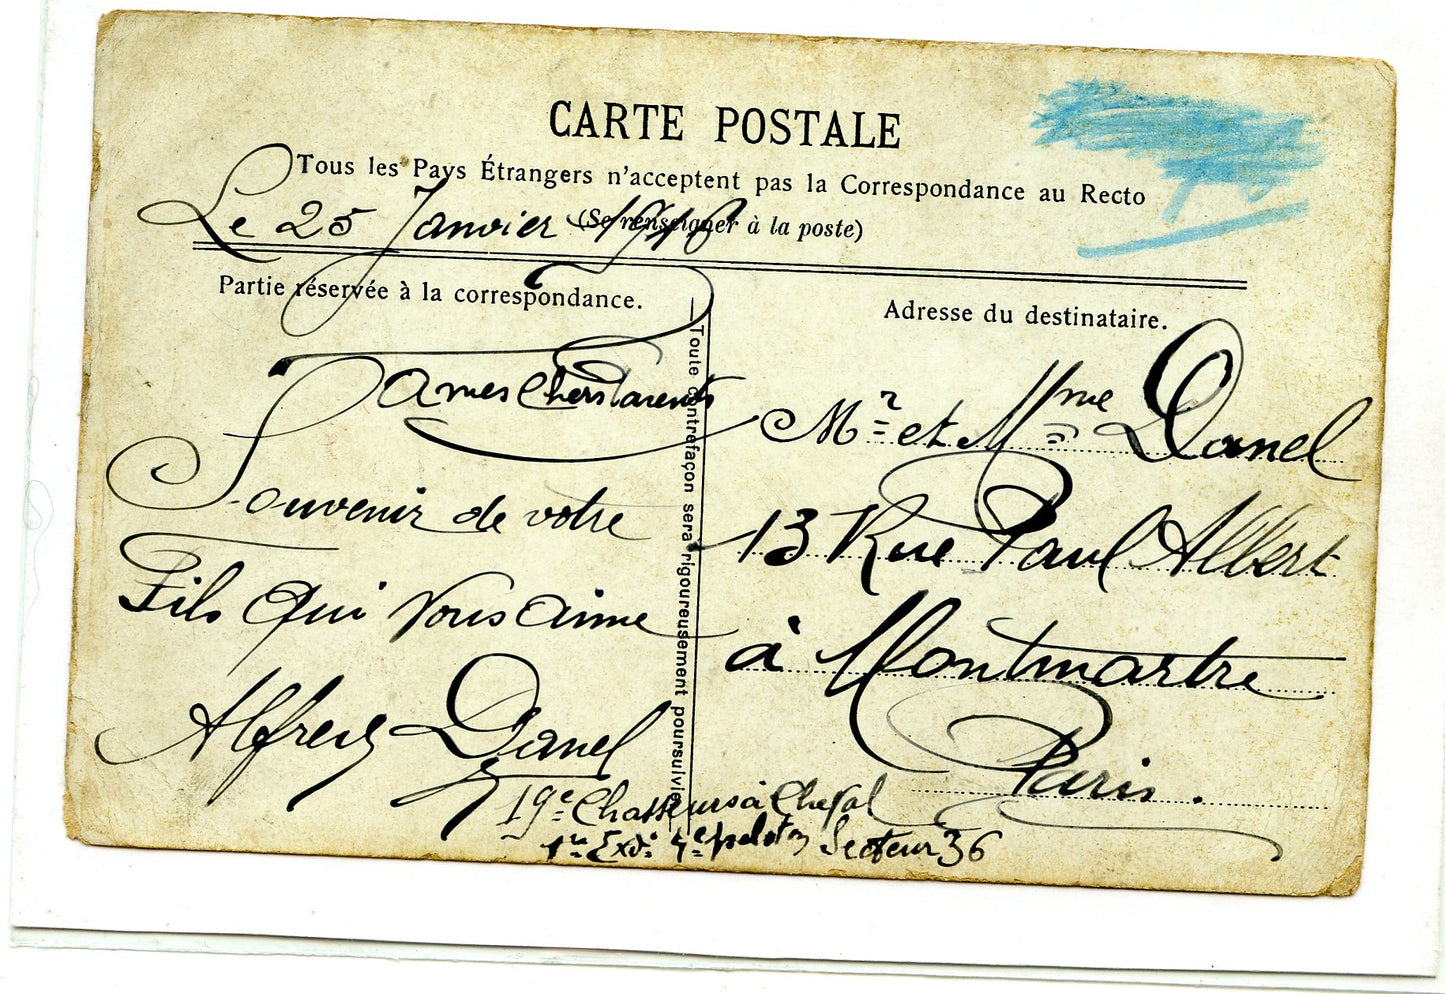 CARTE POSTALE
Tous les Pays Étrangers n'acceptent pas la Correspondance au Recto
(Se renseigner à la poste)
Le 25 Janvier 1916
Partie réservée à la correspondance.
Adresse du destinataire.
Toute contrefaçon sera rigoureusement poursuivie
A mes Chers Parents
Souvenir de votre
Fils Qui Vous aime
Alfred Danel
19e Chasseurs à Cheval
1er 4e peloton Secteur 36
Mr et Mme Danel
13 Rue Paul Albert
à Montmartre
Paris.